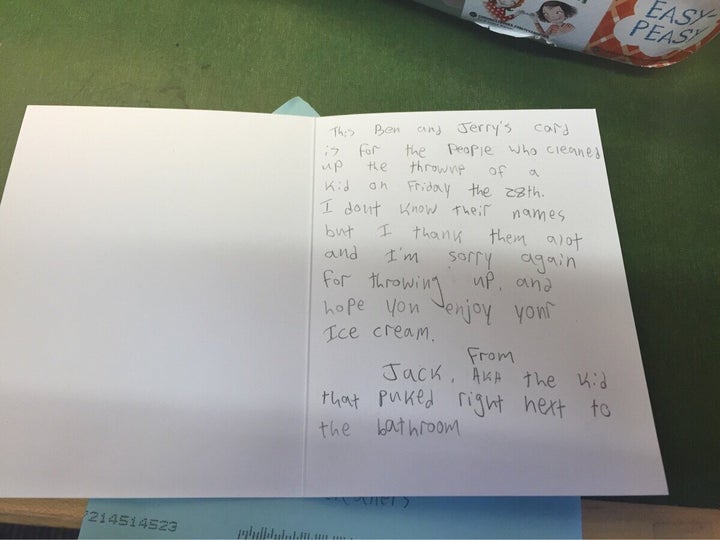 EASY-
PEASY
This Ben and Jerry's card
is for the People who cleaned
up the throwup of a
Kid on Friday the 28th.
I dont know their names
but I thank them alot
and I'm sorry again
for throwing up, and
hope you enjoy your
Ice cream.
From
Jack, AKA the kid
that puked right next to
the bathroom
7214514523